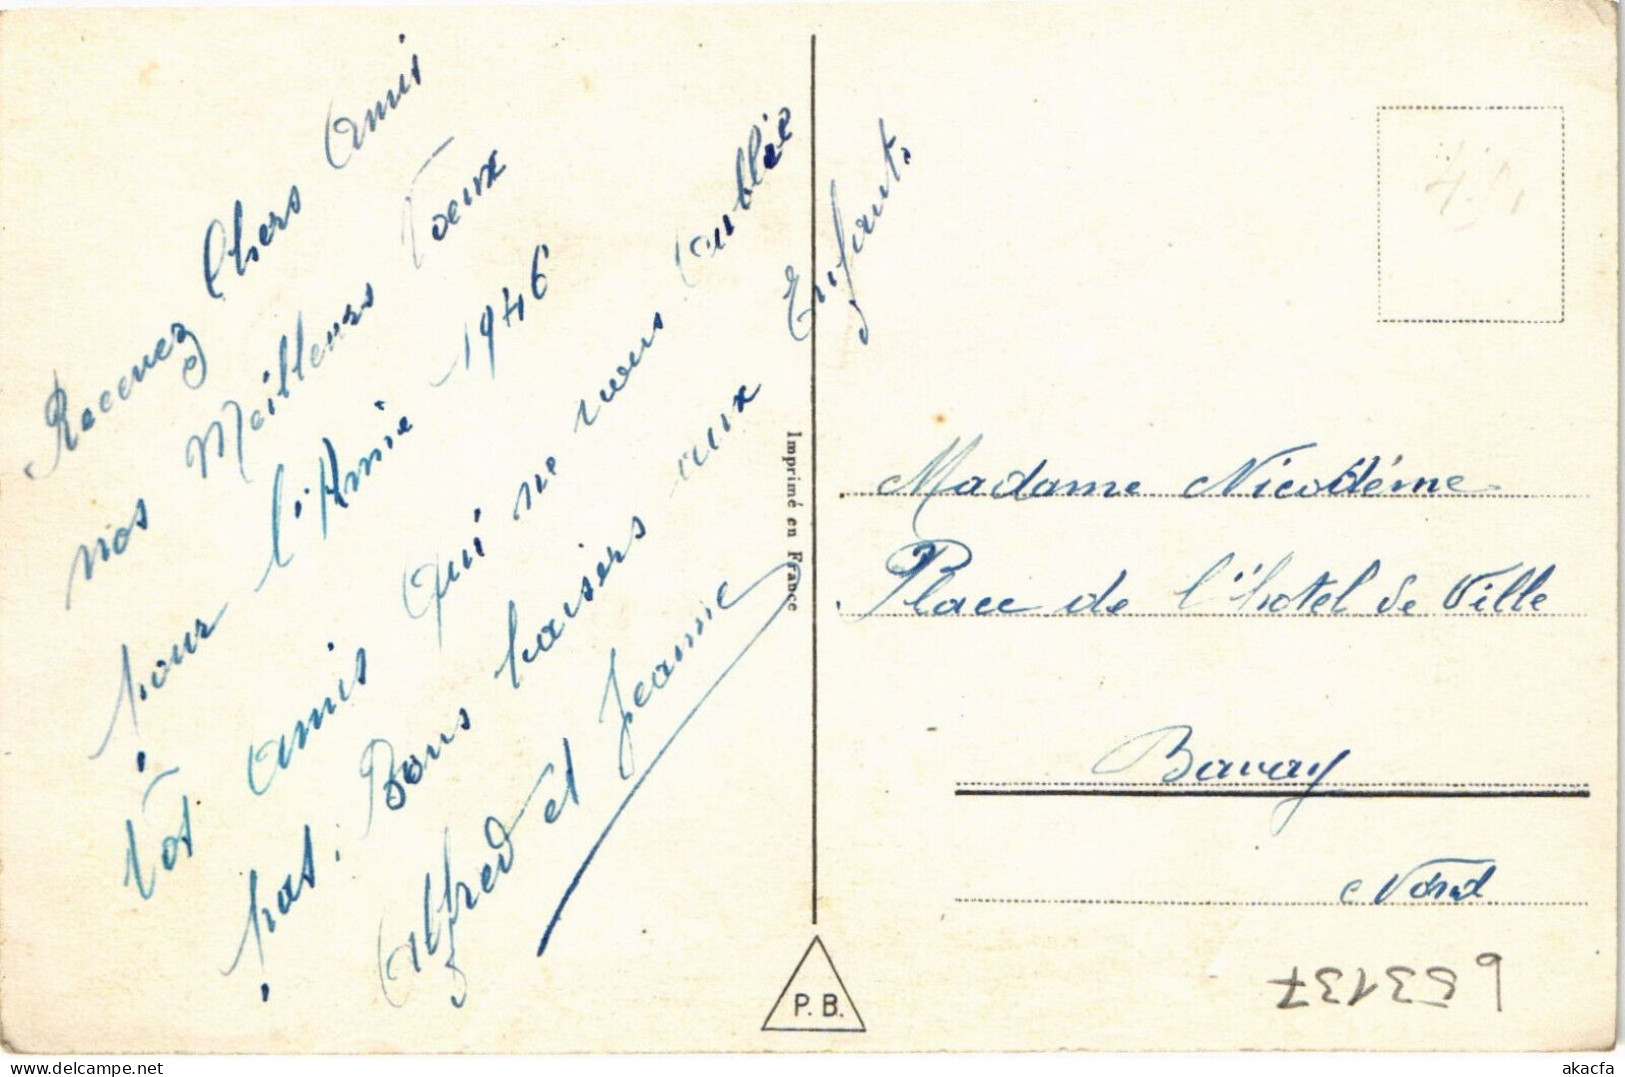 Recevez Chers Amis
nos Meilleurs Voeux
pour l'Année 1946
Vos amis Qui ne vous Oublie
pas. Bons baisers aux Enfants.
Alfred et Jeanne
Imprimé en France
P. B.
Madame Nicodéme
Place de l'hotel de Ville
Bavay
Nord
akacfa